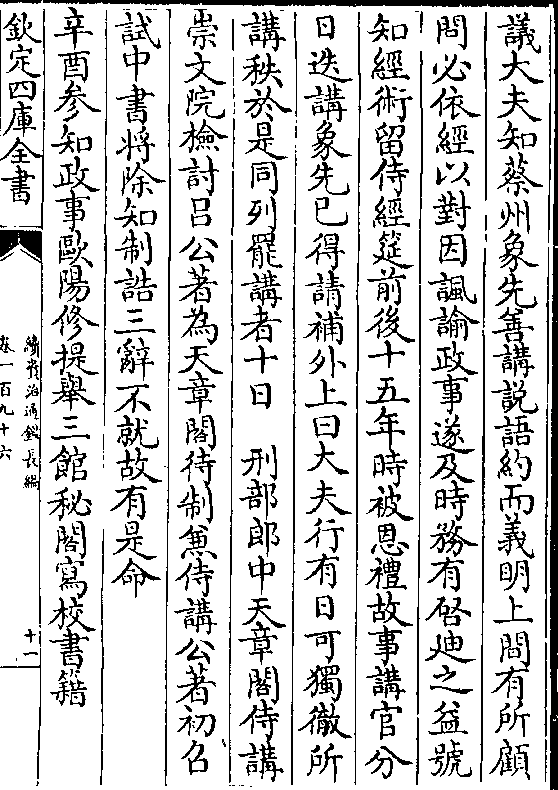 議大夫知蔡州象先善講說語約而義明上間有所顧
問必依經以對因諷諭政事遂及時務有啓廸之益號
知經術留侍經筵前後十五年時被恩禮故事講官分
日迭講象先已得請補外上曰大夫行有日可獨徹所
講秩於是同列罷講者十日　刑部郎中天章閣侍講
崇文院檢討吕公著為天章閣待制兼侍講公著初召
試中書將除知制誥三辭不就故有是命
辛酉參知政事歐陽修提舉三館秘閣寫校書籍
欽定四庫全書
續資治通鑑長編
卷一百九十六
十一